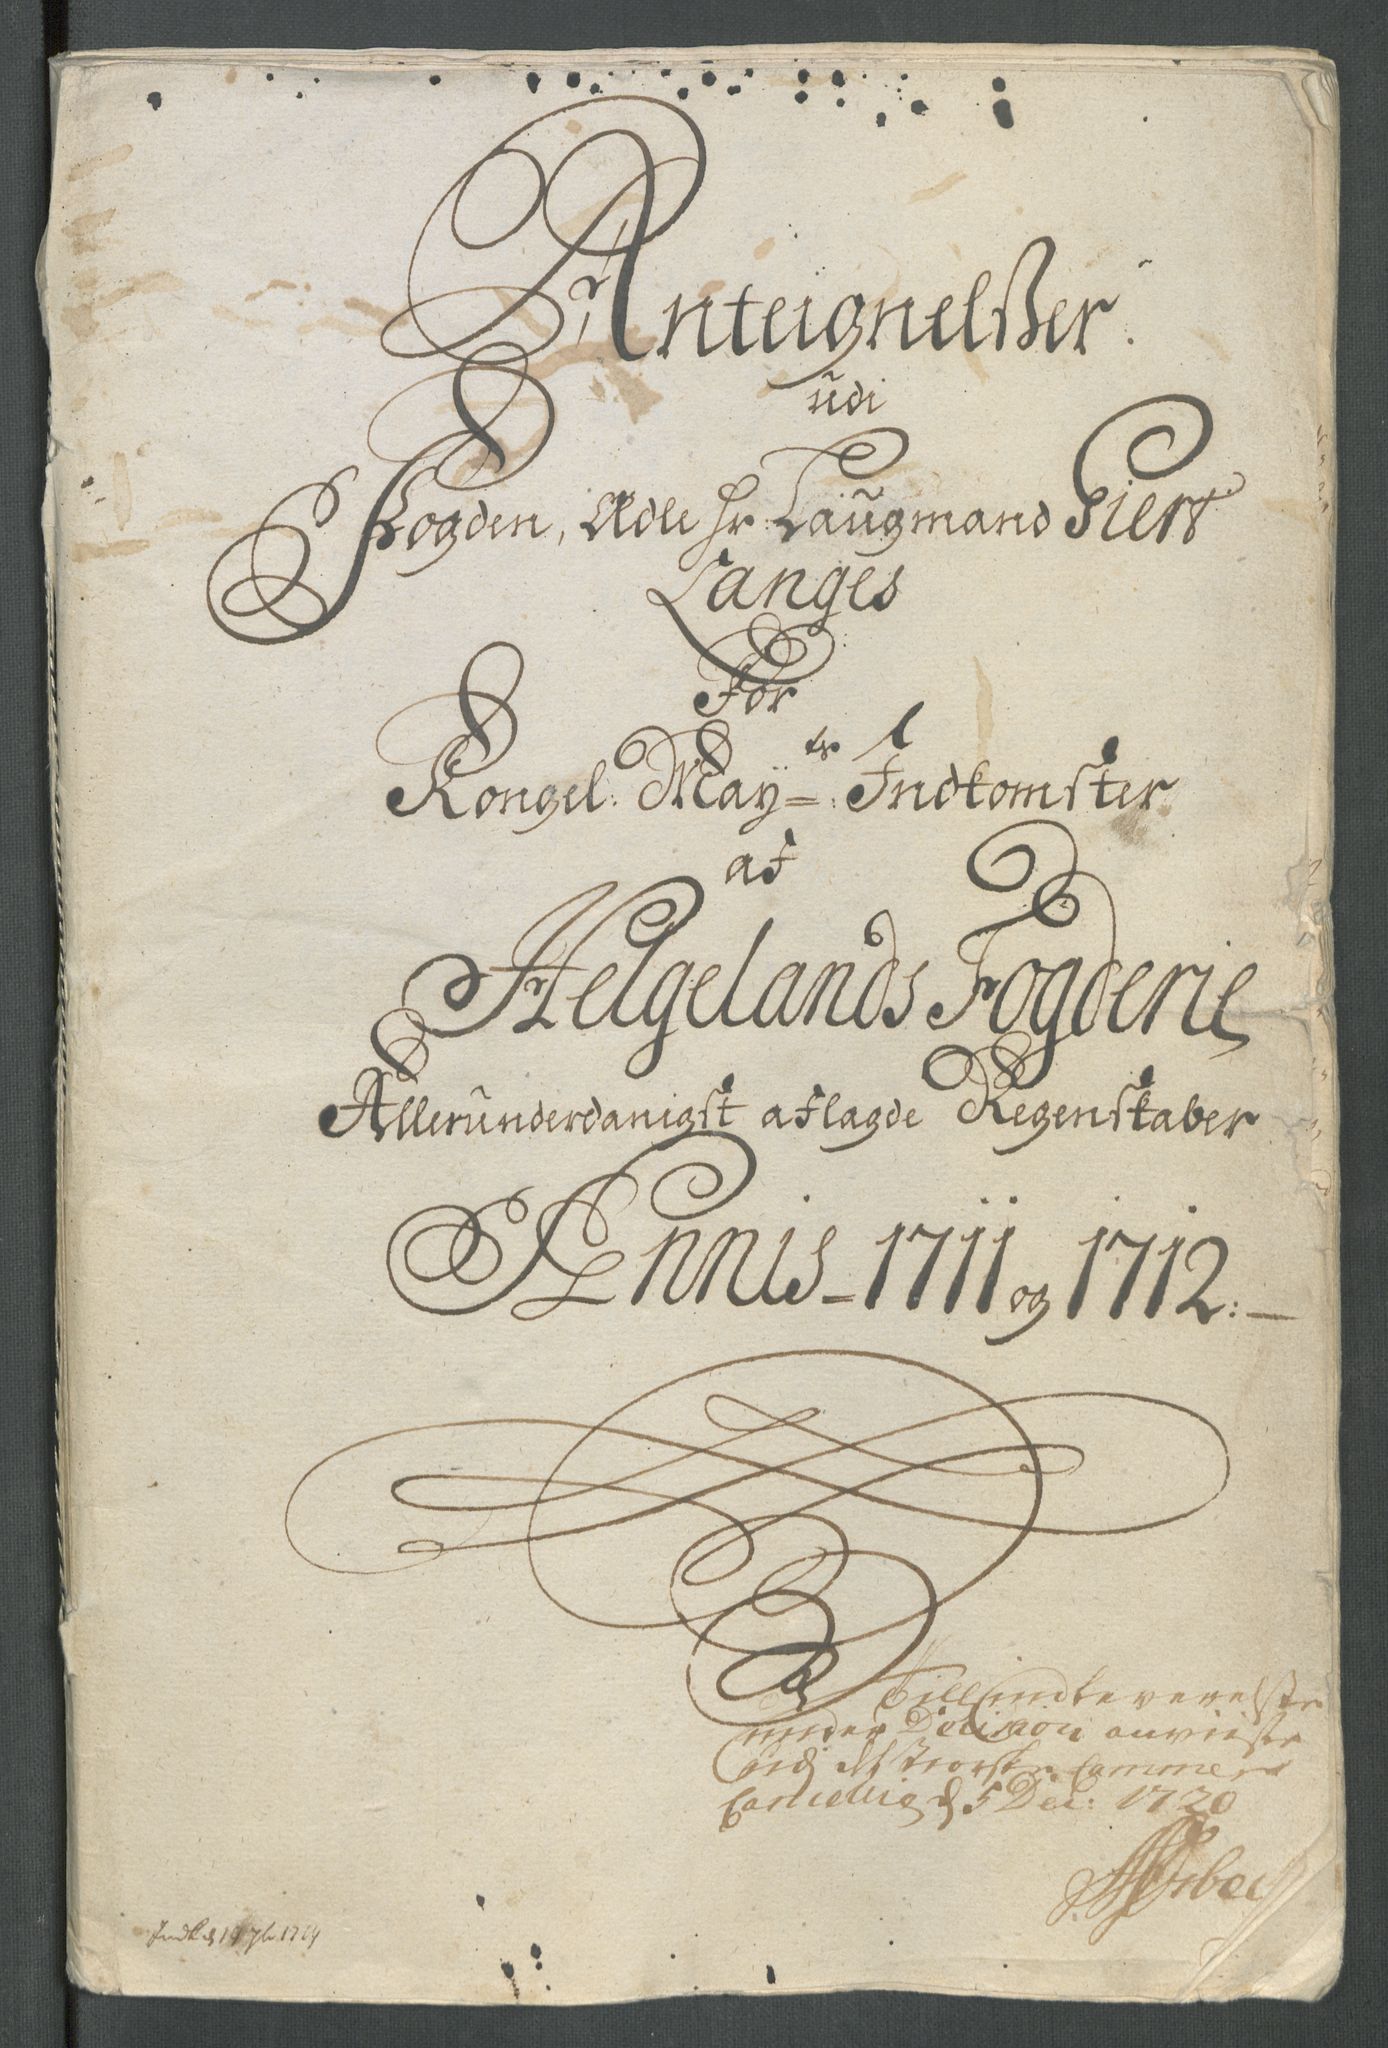 Anteignelßer
udi
Fogden, Ædle Hr: Laugmand Giert
Langes
For
Kongel: May=ts: Indkomster
af
Helgelands Fogderie
Allerunderdanigst aflagde Regenskaber
Annis_ 1711 og 1712:_
under Decision
Cammer
d 5 Dec: 1720
Indk d 19 7br 1714